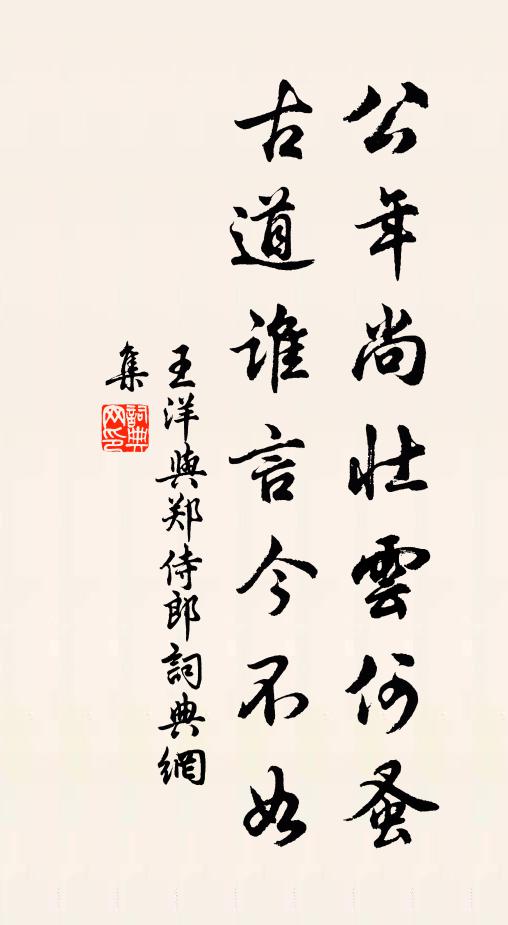 公年尚壯雲何蚤
古道誰言今不如
王洋與郑侍郎詞典網
集
詞典网印